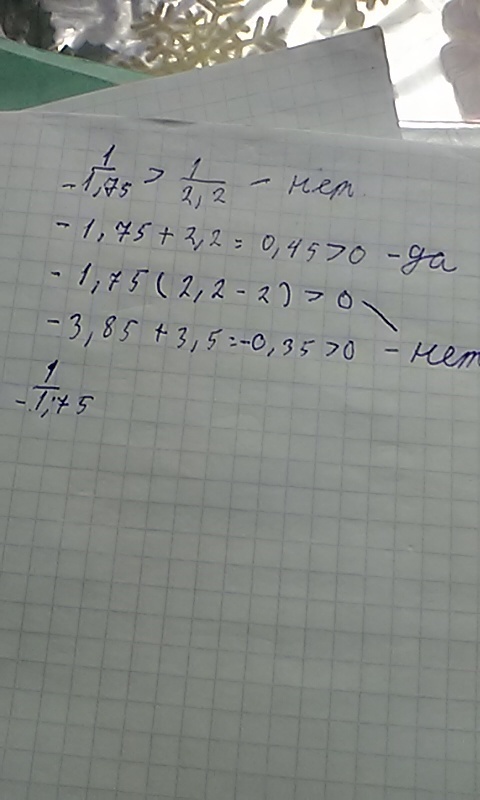 1/-1,75 > 1/2,2 - нет
-1,75+2,2=0,45>0 - да
-1,75(2,2-2)>0
-3,85+3,5=-0,35>0 - нет
1/-1,75